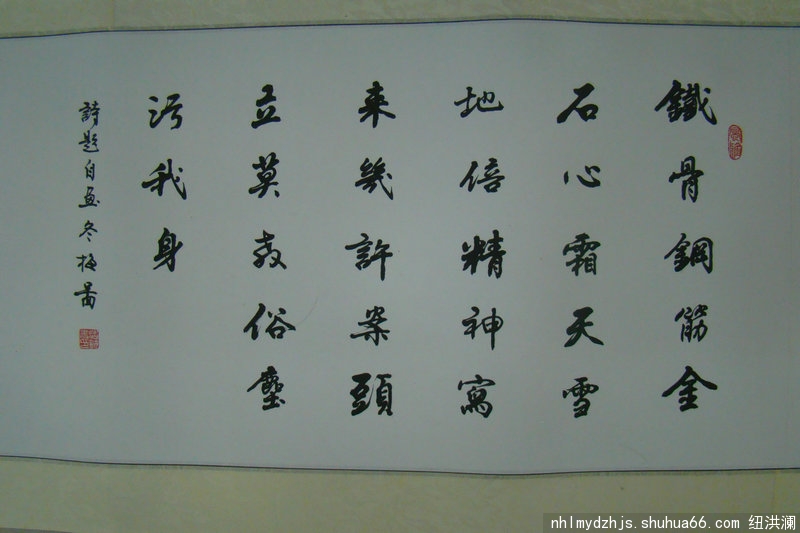 鐵骨鋼筋金
石心霜天雪
地倍精神寫
来幾許案頭
立莫教俗塵
污我身
詩題自画冬梅圖
nhlmydzhjs.shuhua66.com 纽洪澜